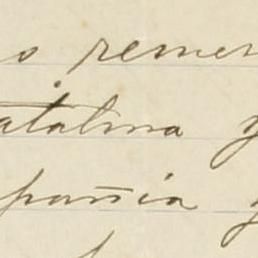 o remer
atalina y
pañia y